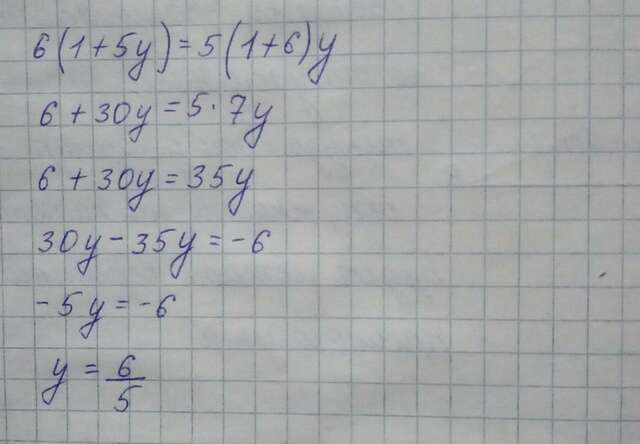 6(1+5y)=5(1+6)y
6+30y=5·7y
6+30y=35y
30y-35y=-6
-5y=-6
y=6/5